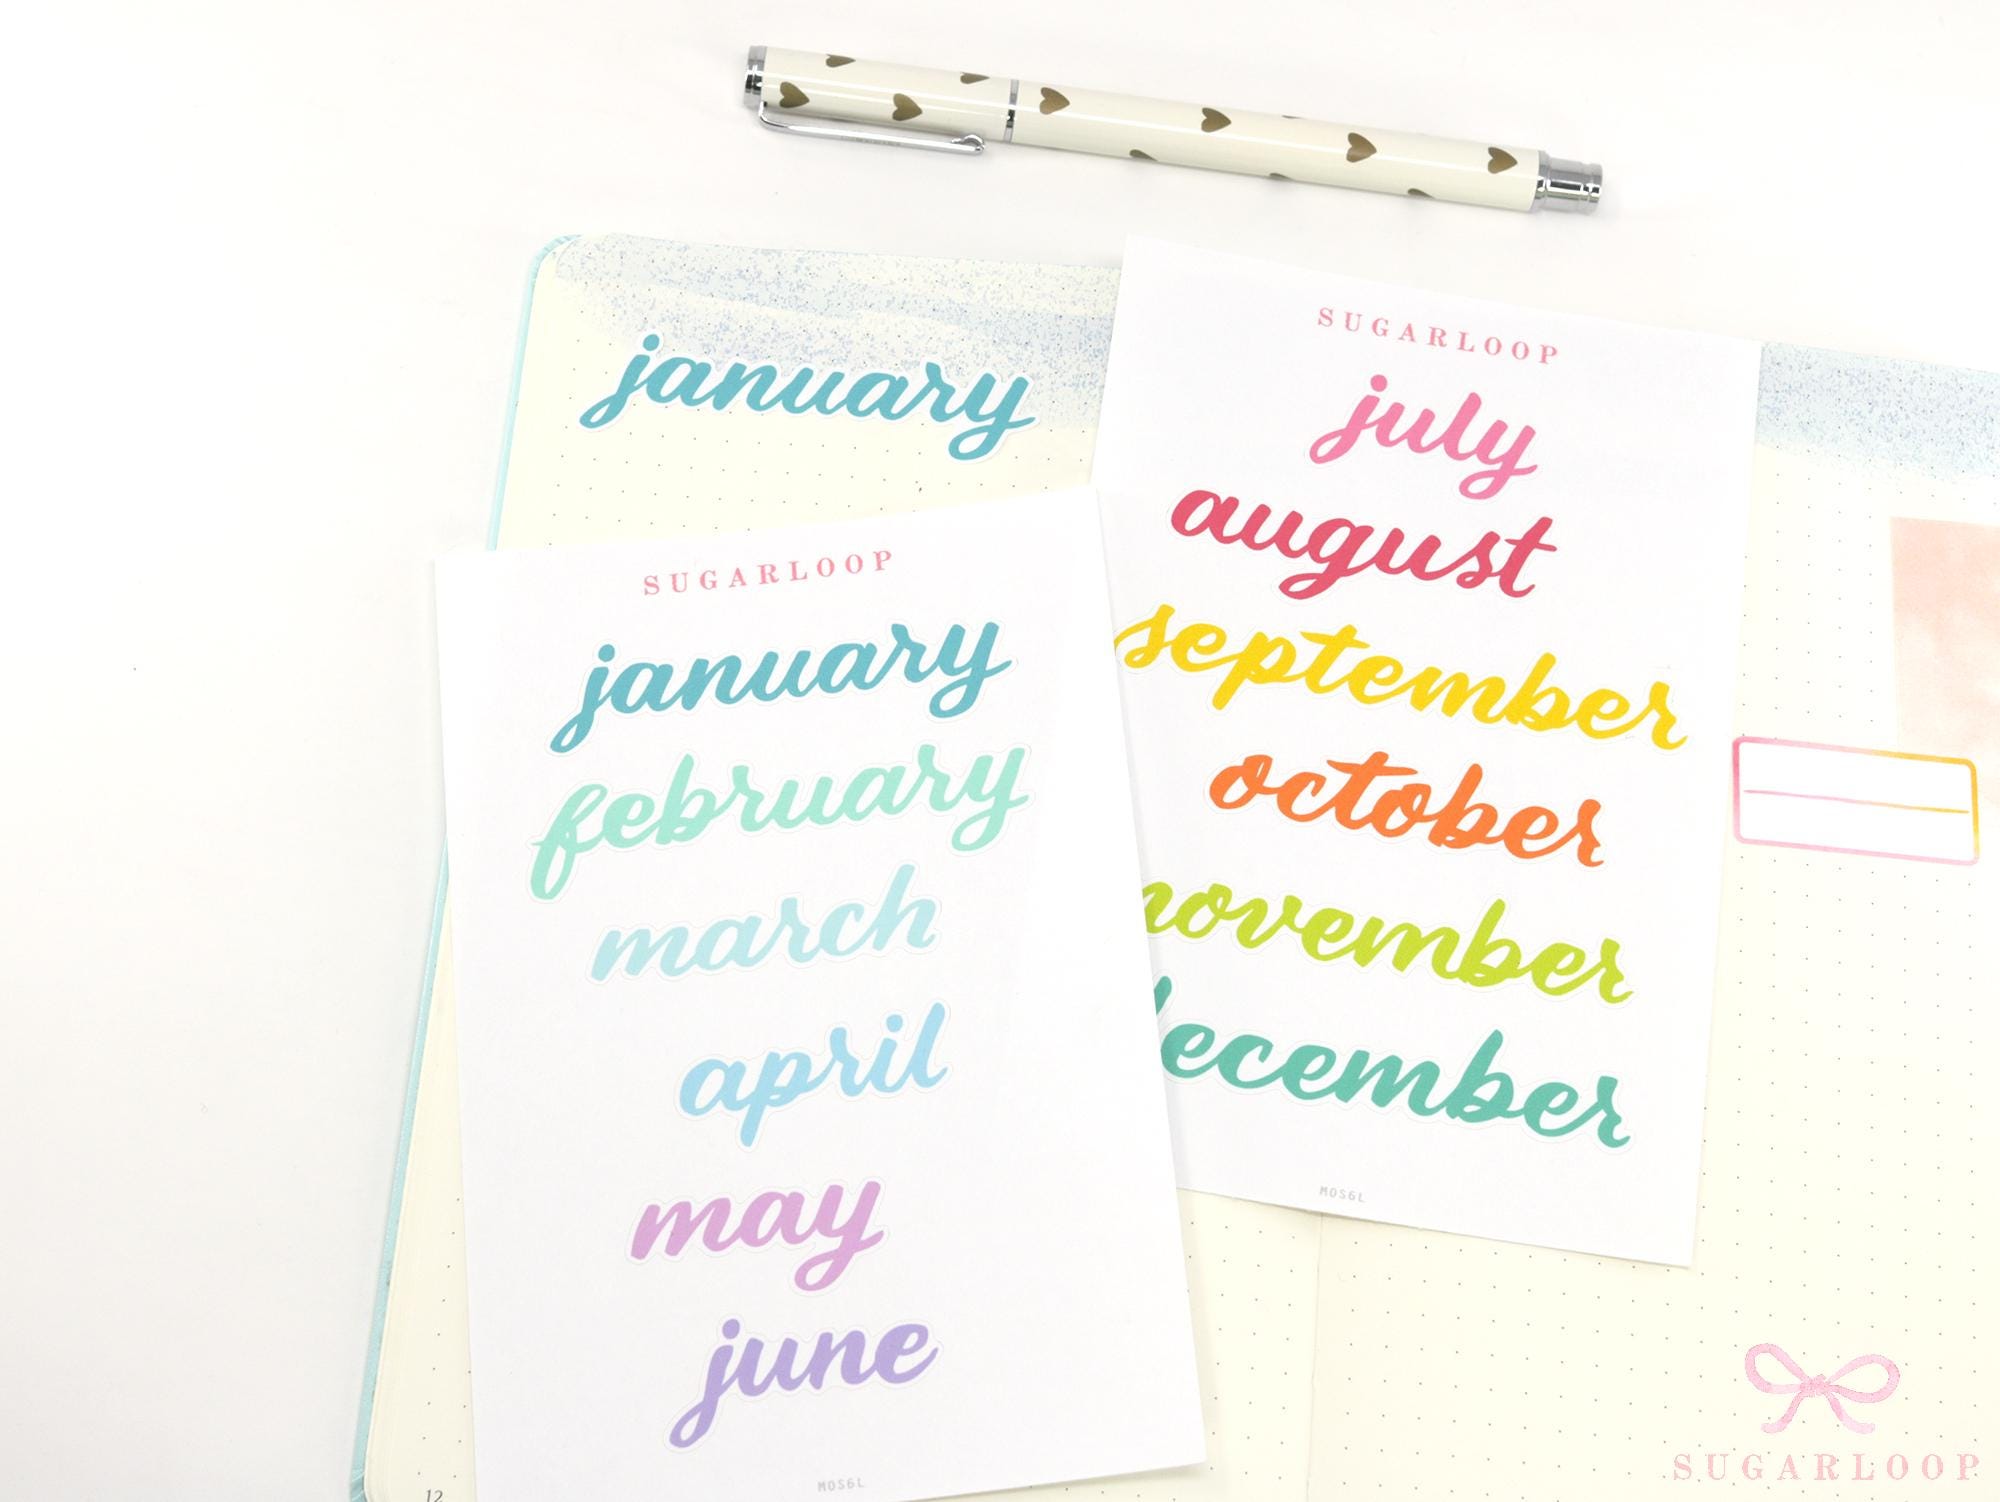 january
SUGARLOOP
january
february
march
april
may
june
MOS6L
SUGARLOOP
july
august
september
october
november
december
MOS6L
12
SUGARLOOP